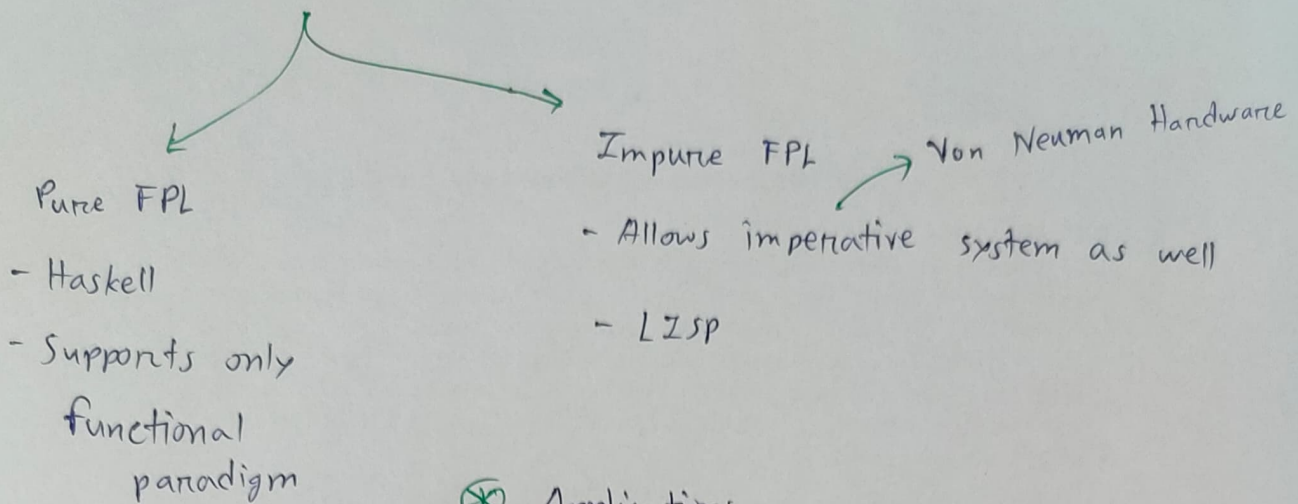 Pure FPL
- Haskell
- Supports only
functional
paradigm
Impure FPL
Von Neuman Hardware
- Allows imperative system as well
- LISP